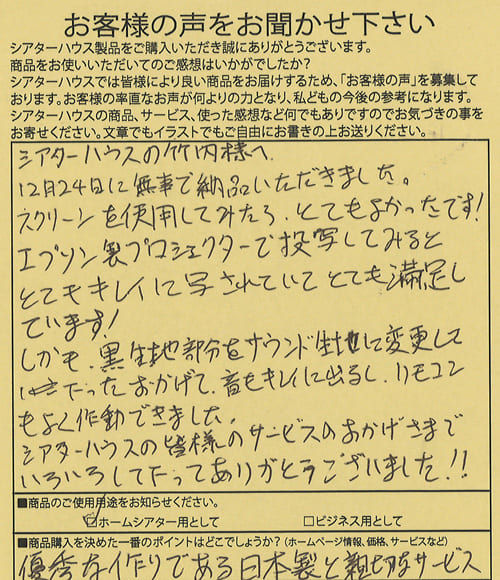 お客様の声をお聞かせ下さい
シアターハウス製品をご購入いただき誠にありがとうございます。
商品をお使いいただいてのご感想はいかがでしたか?
シアターハウスでは皆様により良い商品をお届けするため、「お客様の声」を募集して
おります。お客様の率直なお声が何よりの力となり、私どもの今後の参考になります。
シアターハウスの商品、サービス、使った感想など何でもありですのでお気づきの事を
お寄せください。文章でもイラストでもご自由にお書きの上お送りください。
シアターハウスの竹内様へ
12月24日に無事で納品いただきました。
スクリーンを使用してみたら、とてもよかったです!
エプソン製プロジェクターで投写してみると
とてもキレイに写されていてとても満足し
ています!
しかも、黒生地部分をサウンド生地に変更して
下ったおかげで、音もキレイに出るし、リモコン
もよく作動できました。
シアターハウスの皆様のサービスのおかげさまで
いろいろして下ってありがとうございました!!
■商品のご使用用途をお知らせください。
☑ホームシアター用として □ビジネス用として
■商品購入を決めた一番のポイントはどこでしょうか?(ホームページ情報、価格、サービスなど)
優秀な作りである日本製と親切なサービス